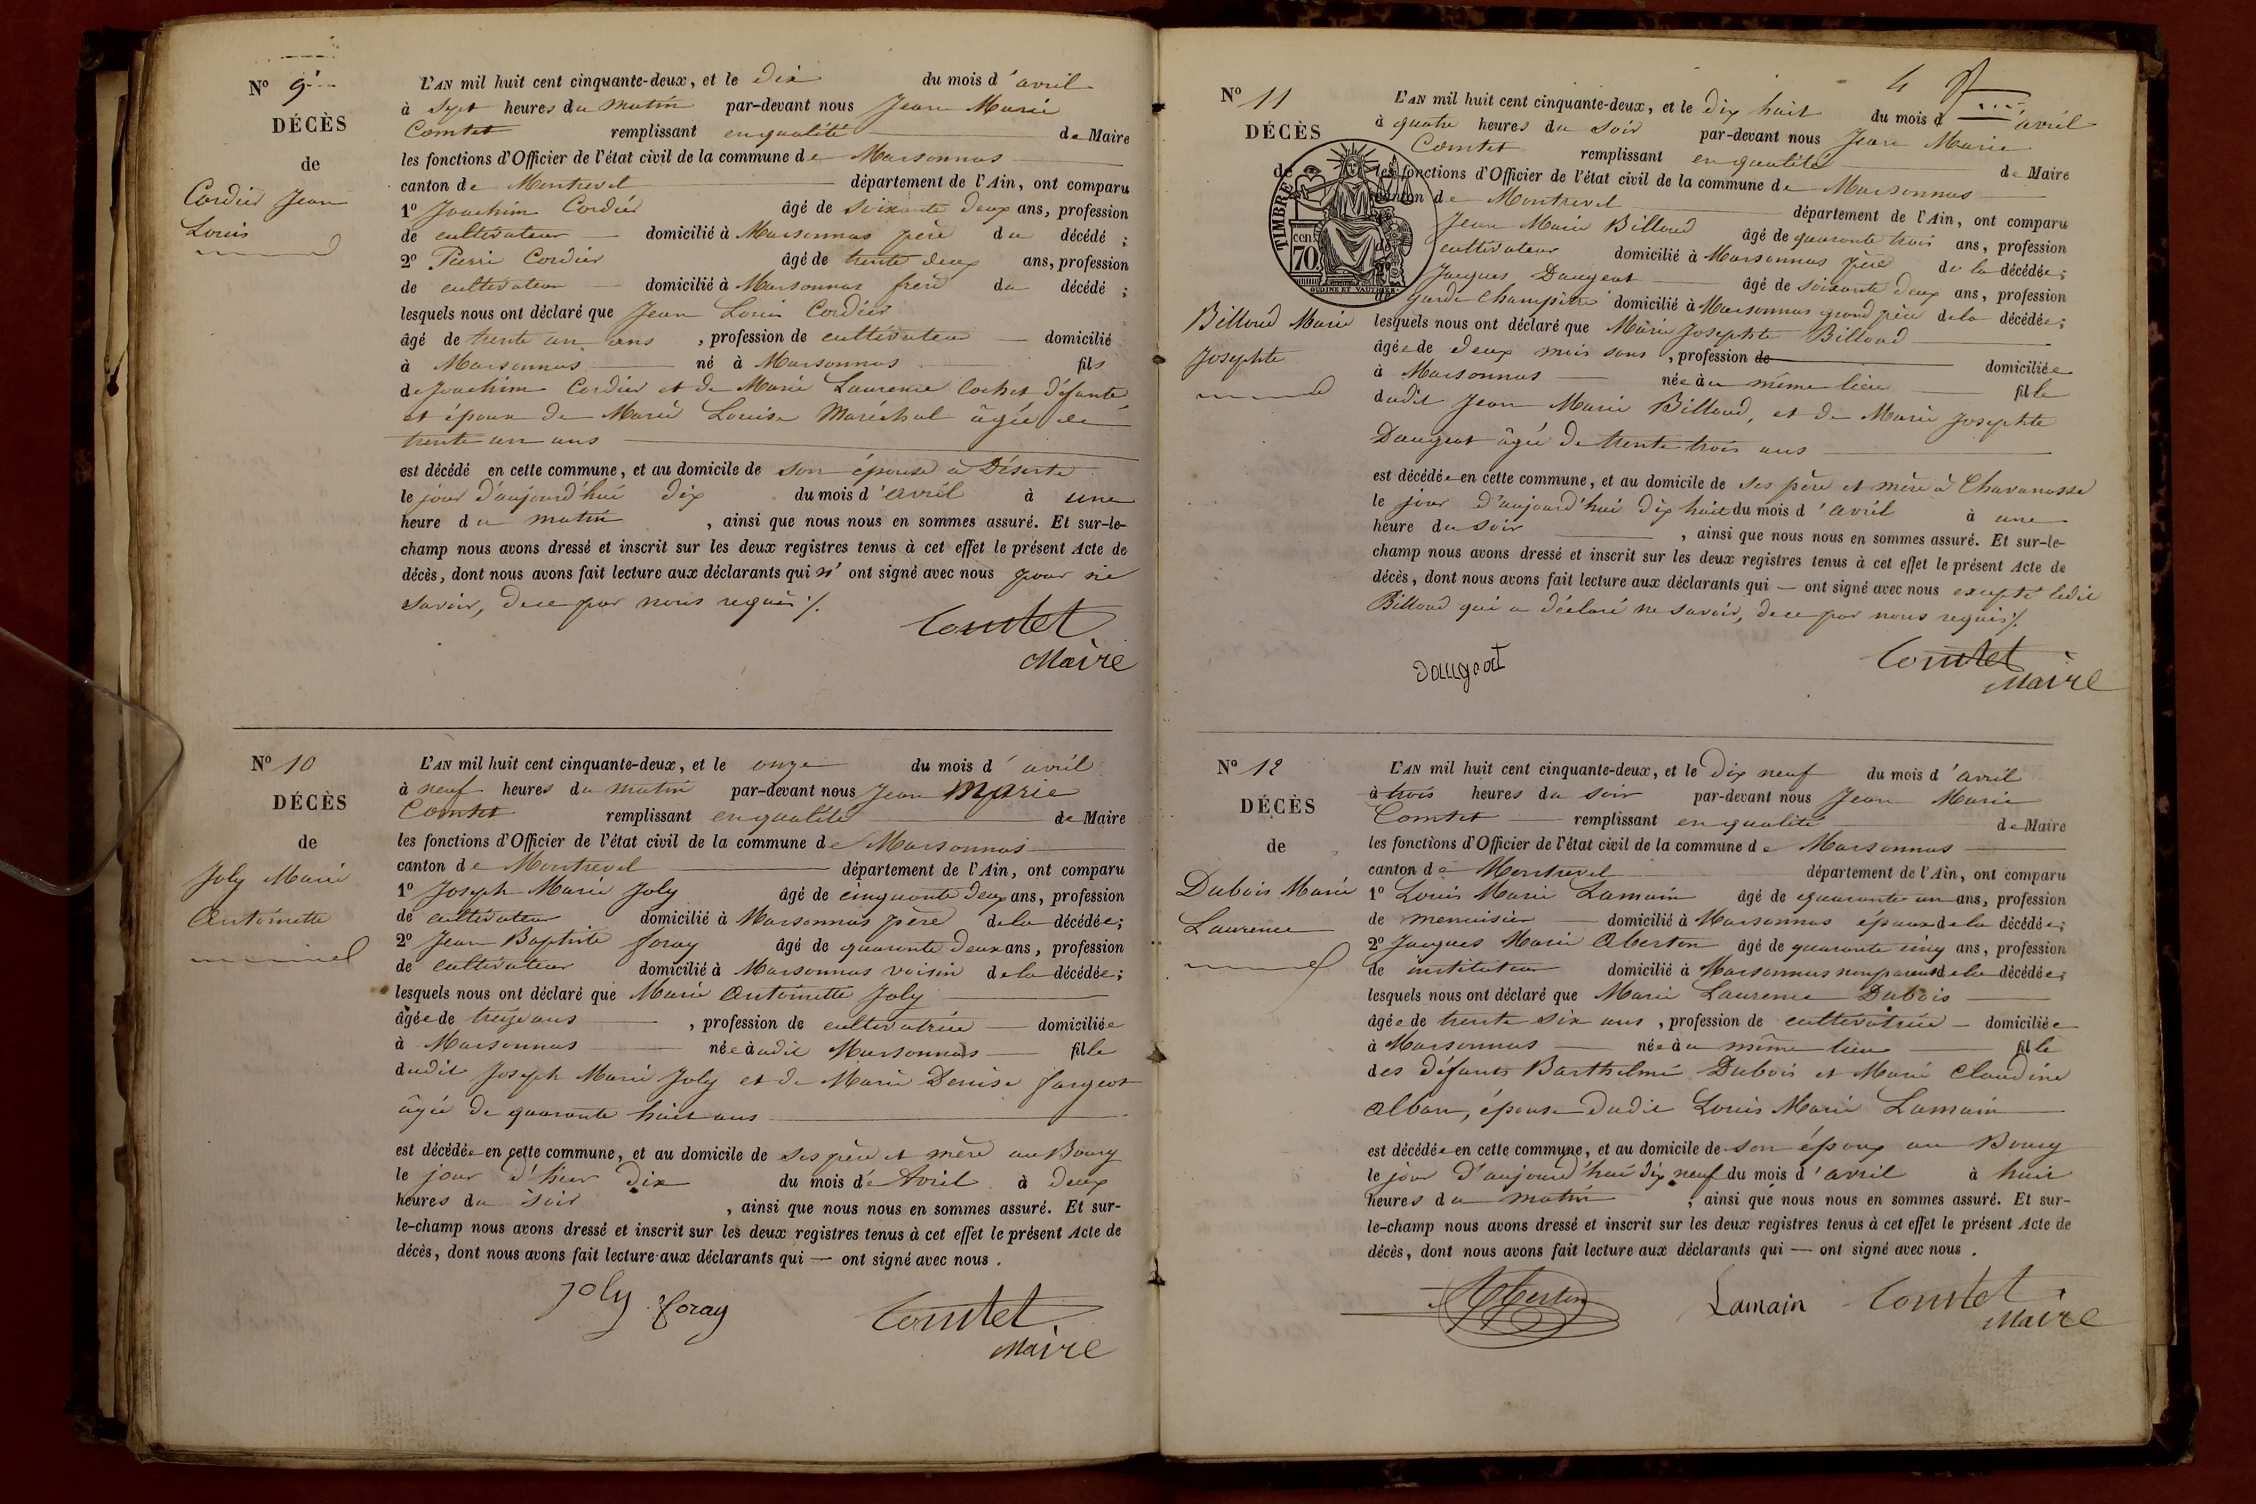 N° 9
DÉCÈS
de
Cordier Jean
Louis
L'AN mil huit cent cinquante-deux, et le dix du mois d'avril
à sept heures du matin par-devant nous Jean Marie
Comtet remplissant en qualité de Maire
les fonctions d'Officier de l'état civil de la commune de Marsonnas
canton de Montrevel département de l'Ain, ont comparu
1° Joachim Cordier âgé de soixante deux ans, profession
de cultivateur domicilié à Marsonnas père du décédé ;
2° Pierre Cordier âgé de trente deux ans, profession
de cultivateur domicilié à Marsonnas frère du décédé ;
lesquels nous ont déclaré que Jean Louis Cordier
âgé de trente un ans , profession de cultivateur domicilié
à Marsonnas né à Marsonnas fils
de Joachim Cordier et de Marie Laurence Cochet défunte
et époux de Marie Louise Maréchal âgée de
trente un ans
est décédé en cette commune, et au domicile de son épouse à Déserte
le jour d'aujourd'hui dix du mois d'avril à une
heure du matin , ainsi que nous nous en sommes assuré. Et sur-le-
champ nous avons dressé et inscrit sur les deux registres tenus à cet effet le présent Acte de
décès, dont nous avons fait lecture aux déclarants qui n'ont signé avec nous pour ne
savoir, de ce par nous requis ./.
Comtet
Maire
N° 10
DÉCÈS
de
Joly Marie
Antoinette
L'AN mil huit cent cinquante-deux, et le onze du mois d'avril
à neuf heures du matin par-devant nous Jean Marie
Comtet remplissant en qualité de Maire
les fonctions d'Officier de l'état civil de la commune de Marsonnas
canton de Montrevel département de l'Ain, ont comparu
1° Joseph Marie Joly âgé de cinquante deux ans, profession
de cultivateur domicilié à Marsonnas père de la décédée ;
2° Jean Baptiste foray âgé de quarante deux ans, profession
de cultivateur domicilié à Marsonnas voisin de la décédée ;
lesquels nous ont déclaré que Marie Antoinette Joly
âgée de treize ans , profession de cultivatrice domiciliée
à Marsonnas née à udit Marsonnas fille
dudit Joseph Marie Joly et de Marie Denise fargeot
âgée de quarante huit ans
est décédée en cette commune, et au domicile de ses père et mère au Bourg
le jour d'hier dix du mois d'Avril à deux
heures du soir , ainsi que nous nous en sommes assuré. Et sur-
le-champ nous avons dressé et inscrit sur les deux registres tenus à cet effet le présent Acte de
décès, dont nous avons fait lecture aux déclarants qui — ont signé avec nous .
Joly foray Comtet
Maire
4
N° 11
DÉCÈS
de
TIMBRE
cen.
70
Billoud Marie
Josephte
L'AN mil huit cent cinquante-deux, et le dix huit du mois d'avril
à quatre heures du soir par-devant nous Jean Marie
Comtet remplissant en qualité de Maire
les fonctions d'Officier de l'état civil de la commune de Marsonnas
canton de Montrevel département de l'Ain, ont comparu
Jean Marie Billoud âgé de quarante trois ans, profession
de cultivateur domicilié à Marsonnas père de la décédée ;
Jacques Daugeat âgé de soixante deux ans, profession
de garde champêtre domicilié à Marsonnas grand père de la décédée ;
lesquels nous ont déclaré que Marie Josephte Billoud
âgée de deux mois sans , profession de domiciliée
à Marsonnas née au même lieu fille
dudit Jean Marie Billoud, et de Marie Josephte
Daugeat âgée de trente trois ans
est décédée en cette commune, et au domicile de ses père et mère à Chavanosse
le jour d'aujourd'hui dix huit du mois d'avril à une
heure du soir , ainsi que nous nous en sommes assuré. Et sur-le-
champ nous avons dressé et inscrit sur les deux registres tenus à cet effet le présent Acte de
décès, dont nous avons fait lecture aux déclarants qui — ont signé avec nous excepté ledit
Billoud qui a déclaré ne savoir, de ce par nous requis ./.
Daugeat Comtet
Maire
N° 12
DÉCÈS
de
Dubois Marie
Laurence
L'AN mil huit cent cinquante-deux, et le dix neuf du mois d'avril
à trois heures du soir par-devant nous Jean Marie
Comtet remplissant en qualité de Maire
les fonctions d'Officier de l'état civil de la commune de Marsonnas
canton de Montrevel département de l'Ain, ont comparu
1° Louis Marie Lamain âgé de quarante un ans, profession
de menuisier domicilié à Marsonnas époux de la décédée ;
2° Jacques Marie Oberton âgé de quarante cinq ans, profession
de instituteur domicilié à Marsonnas non parent de la décédée ;
lesquels nous ont déclaré que Marie Laurence Dubois
âgée de trente six ans , profession de cultivatrice domiciliée
à Marsonnas née au même lieu fille
des défunts Barthelmi Dubois et Marie Claudine
Alban, épouse dudit Louis Marie Lamain
est décédée en cette commune, et au domicile de son époux au Bourg
le jour d'aujourd'hui dix neuf du mois d'avril à huit
heures du matin , ainsi que nous nous en sommes assuré. Et sur-
le-champ nous avons dressé et inscrit sur les deux registres tenus à cet effet le présent Acte de
décès, dont nous avons fait lecture aux déclarants qui — ont signé avec nous .
Oberton Lamain Comtet
Maire